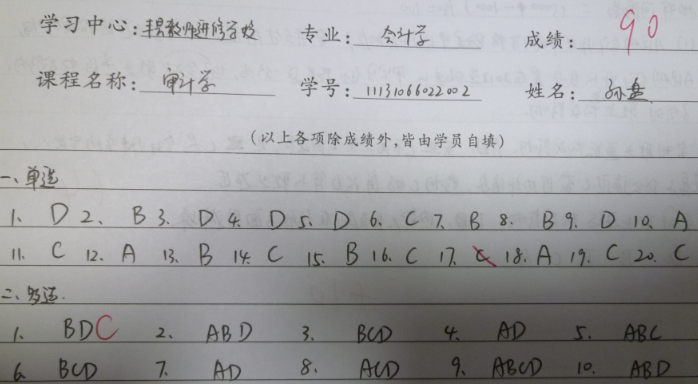 学习中心:丰县教师进修学校 专业: 会计学 成绩: 90
课程名称: 审计学 学号: 11131066022002 姓名: 孙盘
(以上各项除成绩外,皆由学员自填)
一、单选
1. D 2. B 3. D 4. D 5. D 6. C 7. B 8. B 9. D 10. A
11. C 12. A 13. B 14. C 15. B 16. C 17. C 18. A 19. C 20. C
二、多选.
1. BDC 2. ABD 3. BCD 4. AD 5. ABC
6. BCD 7. AD 8. ACD 9. ABCD 10. ABD